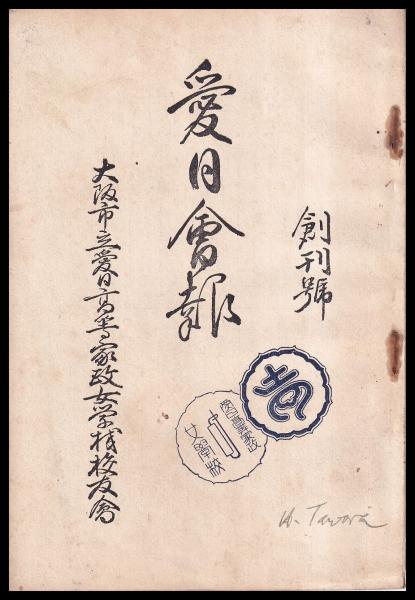 創刊號
愛日會報
大阪市立愛日高等家政女学校校友會
女學校